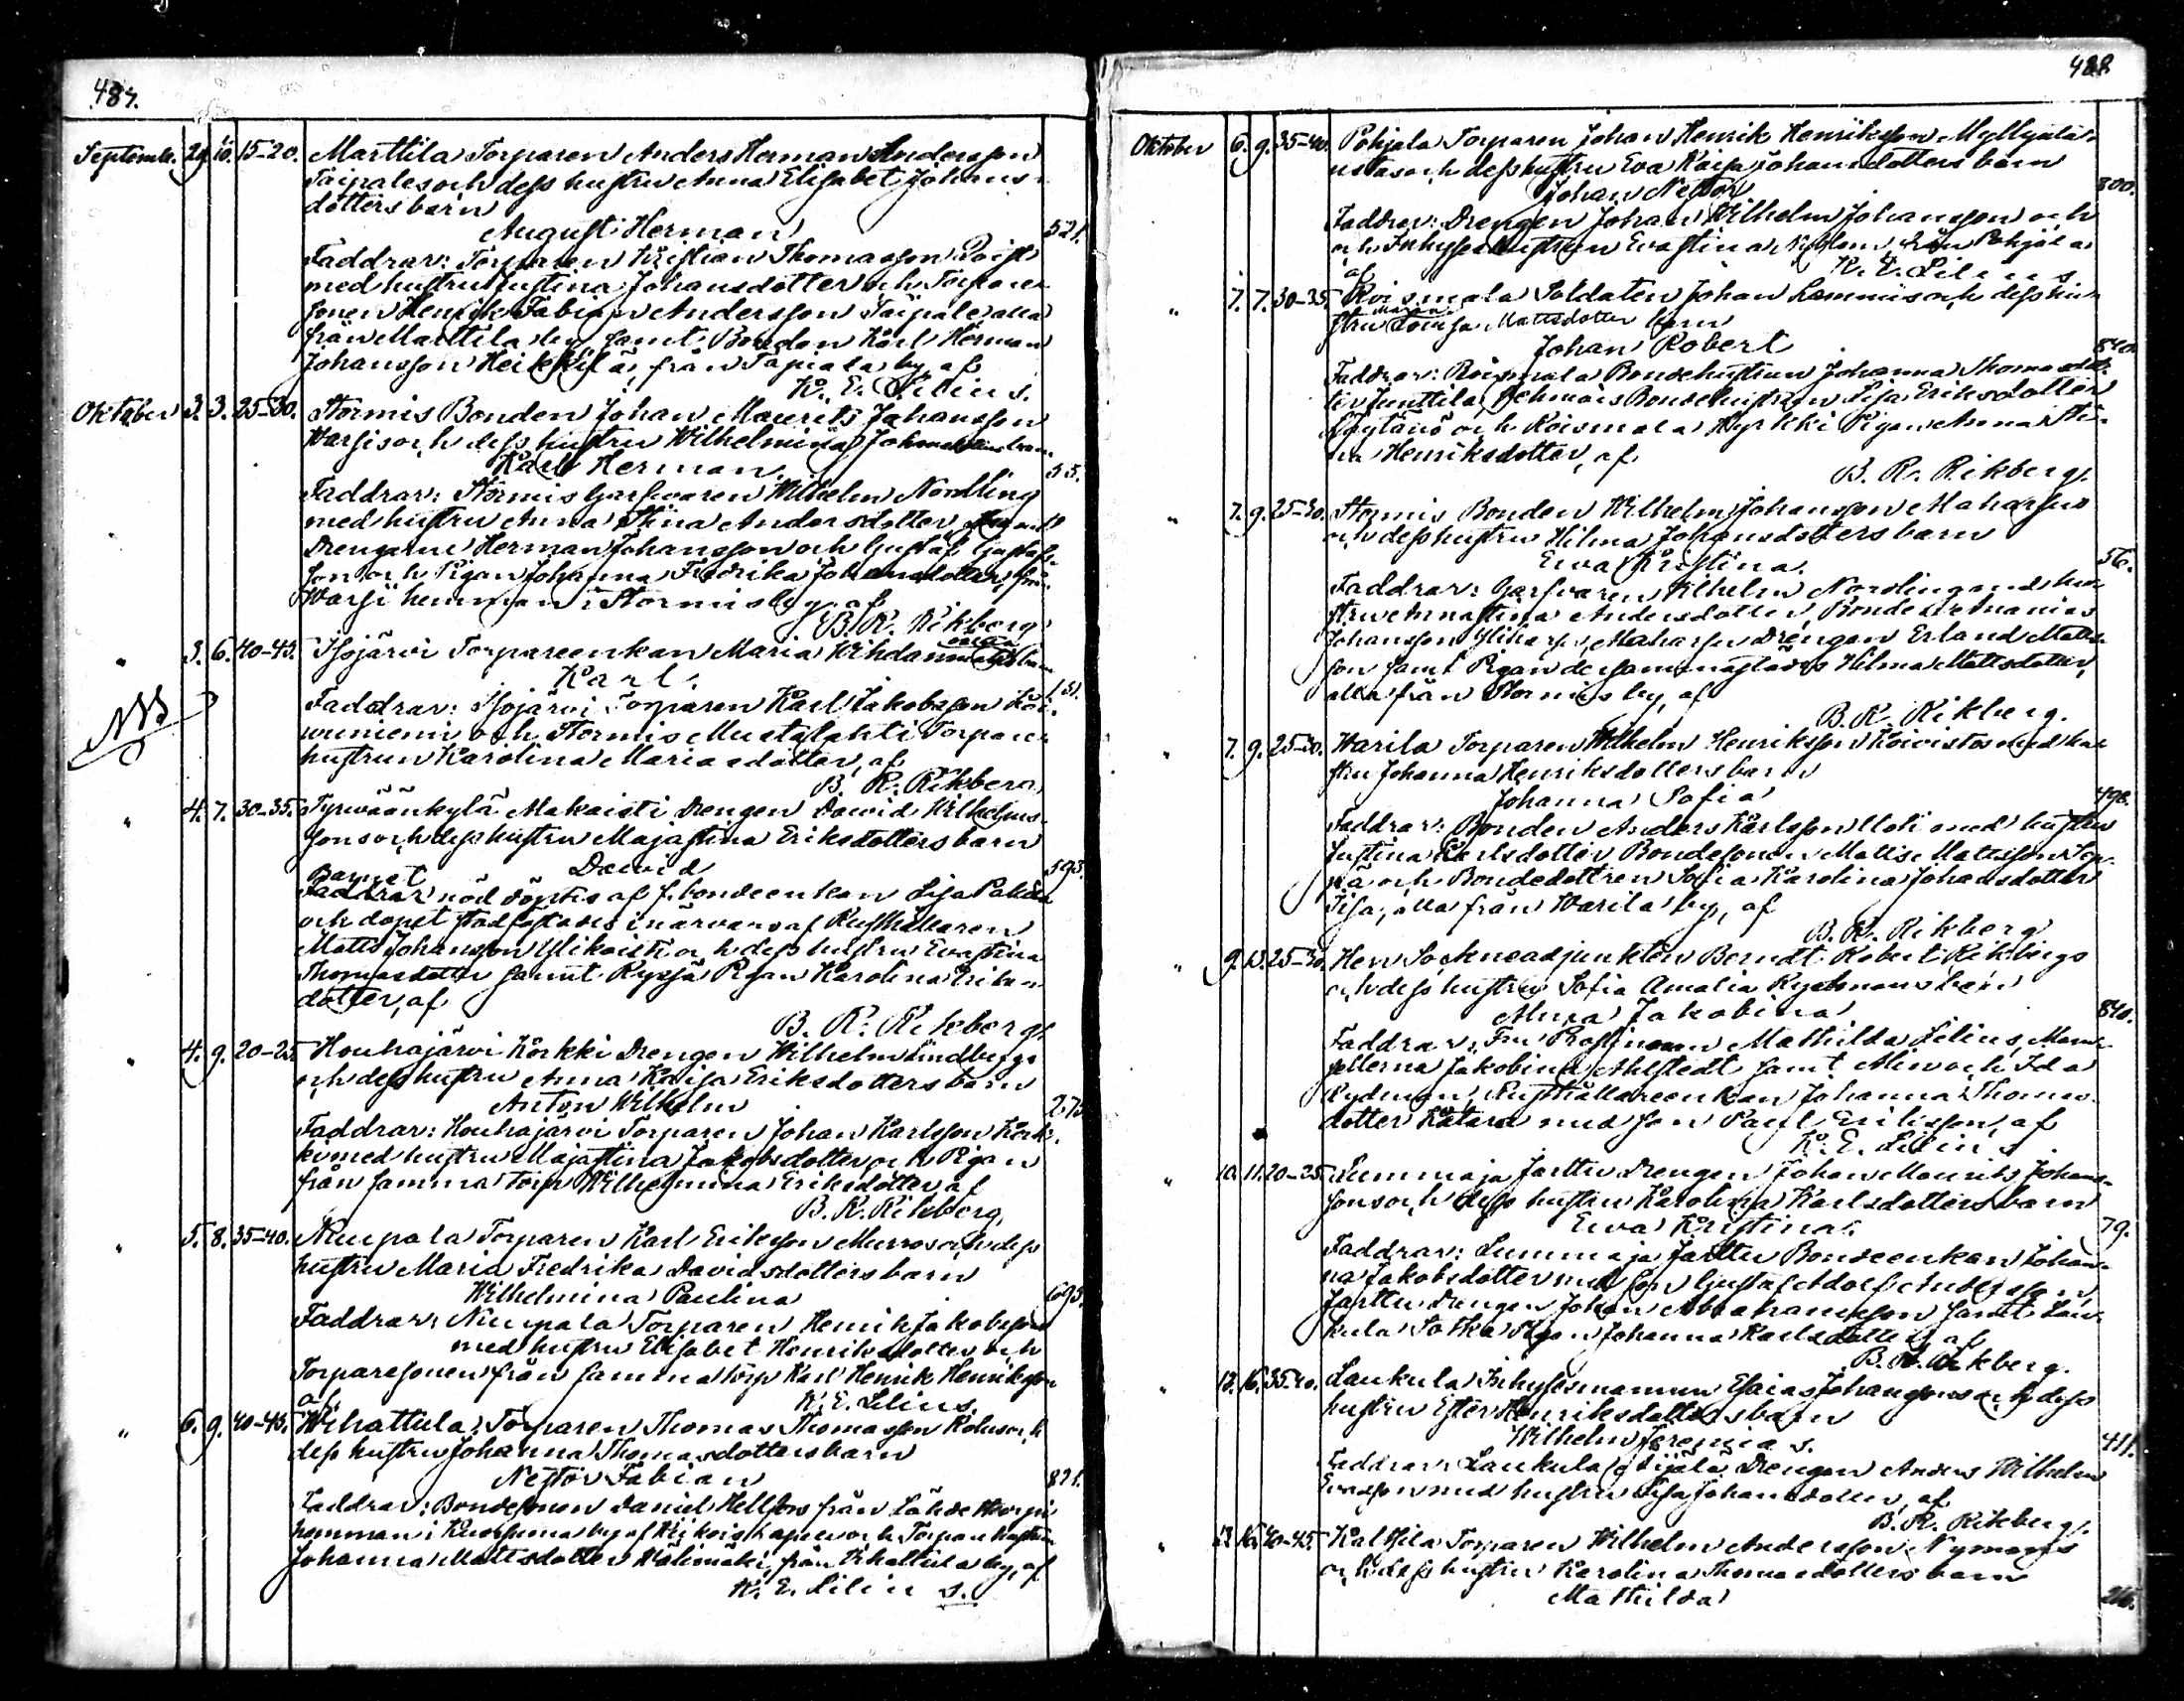 487.
Septemb. 29. 10. 15-20. Marttila Torparen Anders Herman Andersson
Taipales och dess hustru Anna Elisabet Johans-
dotters barn
August Herman 521.
Faddrar: Torparen Kristian Thomasson
med hustru Justina Johansdotter och Torpare-
sonen Henrik Fabian Andersson Taipale, alla
från Marttila by samt Bonden Karl Herman
Johansson Heikkilä, från Tapiala by, af
K. E. Lilius.
Oktober 3. 3. 25-30. Stormis Bonden Johan Maurits Johansson
Warjis och dess hustru Wilhelmina barn
Karl Herman. 55.
Faddrar: Stormis Garfvaren Wilhelm Nordling
med hustru Anna Stina Andersdotter
Drengarne Herman Johansson och Gustaf Gustafs-
son och Pigan Johanna Fredrika Johansdotter, från
Warji hemman i Stormis by, af
B. R. Rikberg
" 3. 6. 40-45. Isojärvi Torpareenkan Maria
Karl. 151.
NB
Faddrar: Isojärvi Torparen Karl Jakobsson Koi-
vuniemi och Stormis Mustalahti Torpare
hustrun Karolina Mariasdotter, af
B. R. Rikberg
" 4. 7. 30-35. Tyrväänkylä Makaisti Drengen David Wilhelms-
sons och dess hustru Majastina Eriksdotters barn
David 593.
Barnet
Faddrar nöd döptes af f. bondeenkan Lisa
och dopet stadfästades i närvaro af Rusthållaren
Matts Johansson Ulikaisti och dess hustru Evastina
Thomasdotter samt Pigan Karolina Eriks-
dotter, af
B. R. Rikberg.
" 4. 9. 20-25. Houhajärvi Körkki Drengen Wilhelm Lindbergs
och dess hustru Anna Kaisa Eriksdotters barn
Anton Wilhelm 275.
Faddrar: Houhajärvi Torparen Johan Karlsson Körk-
ki med hustru Majastina Jakobsdotter och Pigan
från samma torp Wilhelmina Eriksdotter, af
B. R. Rikberg,
" 5. 8. 35-40. Nuupala Torparen Karl Eriksson Murros och dess
hustru Maria Fredrika Davidsdotters barn
Wilhelmina Paulina 693.
Faddrar: Nuupala Torparen Henrik Jakobsson
med hustru Elisabet Henriksdotter och
Torparesonen från samma torp Karl Henrik Henriksson
af K. E. Lilius.
" 6. 9. 40-45. Wihattula Torparen Thomas Thomasson och
dess hustru Johanna Thomasdotters barn
Nestor Fabian 821.
Faddrar: Bondesonen Daniel Hellfors från
hemman i by af Kikois kapell och Torpare hustrun
Johanna Mattsdotter Wälimäki, från Wihattula by, af
K. E. Lilius.
488
Oktober 6. 9. 35-40. Pohjala Torparen Johan Henrik Henriksson Myllyala-
ustas och dess hustru Eva Kaisa Johansdotters barn
Johan Nestor 800.
Faddrar: Drengen Johan Wilhelm Johansson och
och Inhyses hustrun Evastina från Pohjala
af K. E. Lilius.
" 7. 7. 30-35. Roismala Soldaten Johan Lemmis och dess hu-
Maria
stru Lovisa Mattsdotter barn
Johan Robert 840
Faddrar: Roismala Bondehustrun Johanna Thomasdot-
ter Junttila, Bondehustrun Lisa Eriksdotter
och Roismala Kyrkki Pigan Anna Sti-
na Henriksdotter, af
B. R. Rikberg.
" 7. 9. 25-30. Stormis Bonden Wilhelm Johansson Maharjus
och dess hustru Hilma Johansdotters barn
Ewa Kristina. 56.
Faddrar: Garfvaren Wilhelm Nordling med hu-
stru Annastina Andersdotter, Bonden Ananias
Johansson, Maharju Drengen Erland Matts-
son samt Pigan dersammastädes Hilma Mattsdotter,
alla från Stormis by, af
B. R. Rikberg.
" 7. 9. 25-30. Warila Torparen Wilhelm Henriksson Koivistos med hu-
stru Johanna Henriksdotters barn
Johanna Sofia 498.
Faddrar: Bonden Anders Karlsson Uoti med hustru
Justina Karlsdotter Bondesonen Matts Mattsson Sep-
pä och Bondedottren Sofia Karolina Johansdotter
alla från Warila by, af
B. R. Rikberg
" 9. 13. 25-30. Herr Sockneadjunkten Berndt Robert Rikbergs
och dess hustru Sofia Amalia Rydmans barn
Jakobina 840.
Faddrar: Fru Prostinnan Mathilda Lilius, Mam-
sellerna Jakobina Ahlstedt samt och Ida
Rydman, Rusthållareenkan Johanna Thomas-
dotter med son Eriksson, af
K. E. Lilius
" 10. 11. 20-25. Lummaja Jarttu Drengen Johan Maurits Johans-
sons och dess hustru Karolina Karlsdotters barn
Ewa Kristina. 79.
Faddrar: Lummaja Jarttu Bondeenkan Johan-
na Jakobsdotter med son Gustaf Adolf Andersson,
Jarttu Drengen Johan Abrahamsson samt Lau-
kula Sotka Pigan Johanna Karlsdotter, af
B. R. Rikberg.
" 13. 16. 35-40. Laukula Inhysesmannen Esaias Johanssons och dess
hustru Ester Henriksdotters barn
Wilhelm Jeremias. 411.
Faddrar: Laukula Drengen Anders Wilhelm
med hustru Lisa Johansdotter, af
B. R. Rikberg.
" 13. 16. 40-45. Torparen Wilhelm Andersson Nymans
och dess hustru Karolina Thomasdotters barn
Mathilda 216.